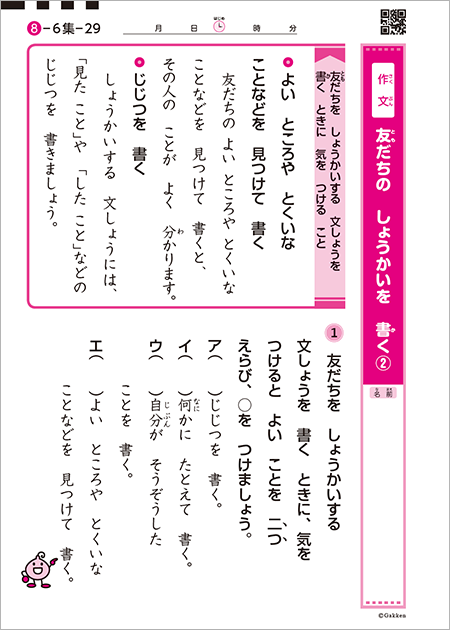 8-6集-29
月 日 はじめ 時 分
作文 さくぶん
友だちの しょうかいを 書く② とも か
名前 なまえ
友だちを しょうかいする 文しょうを
書く ときに 気を つける こと
● よい ところや とくいな
ことなどを 見つけて 書く
友だちの よい ところや とくいな
ことなどを 見つけて 書くと、
その人の ことが よく 分かります。 わ
● じじつを 書く
しょうかいする 文しょうには、
「見た こと」や 「した こと」などの
じじつを 書きましょう。
1 友だちを しょうかいする
文しょうを 書く ときに、気を
つけると よい ことを 二つ
えらび、○を つけましょう。
ア( )じじつを 書く。
イ( )何かに たとえて 書く。 なに
ウ( )自分が そうぞうした じぶん
ことを 書く。
エ( )よい ところや とくいな
ことなどを 見つけて 書く。
©Gakken